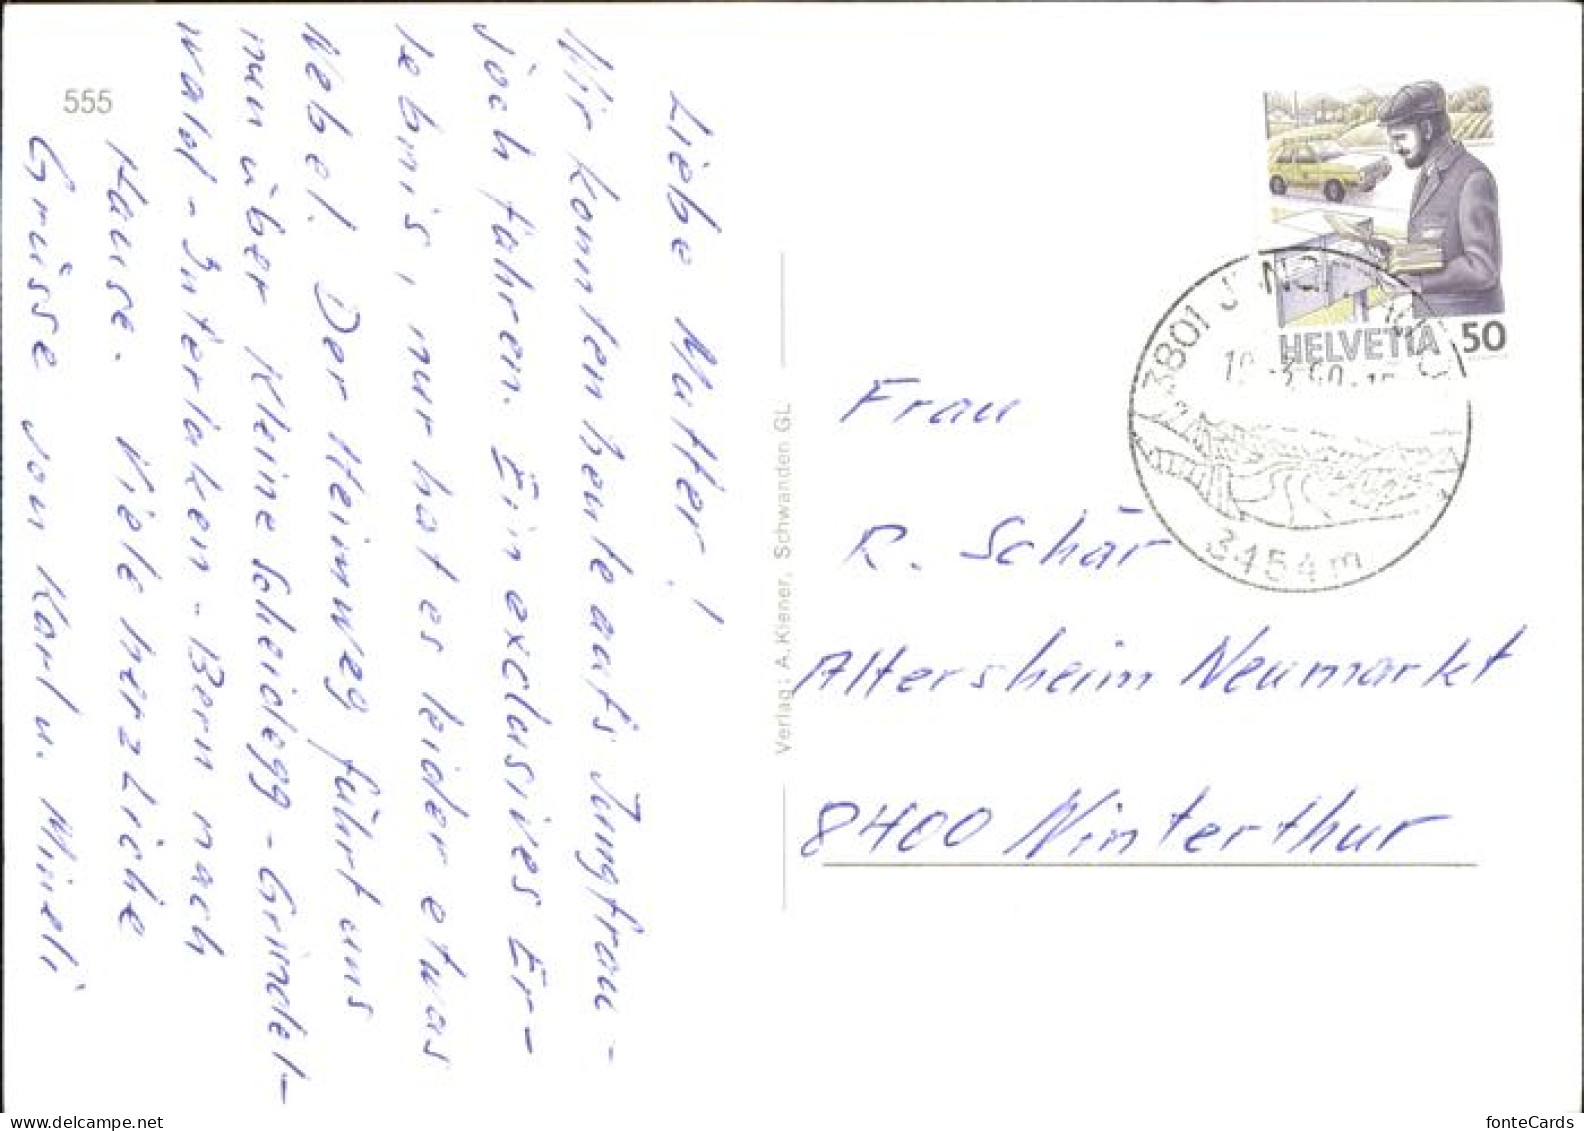 555
Liebe Mutter!
Wir konnten heute aufs Jungfrau-
joch fahren. Ein exclusives Er-
lebnis, nur hat es leider etwas
Nebel. Der Heimweg führt uns
nun über Kleine Scheidegg - Grindel-
wald - Interlaken - Bern nach
Hause. Viele herzliche
Grüsse von Karl u. Mineli
Verlag: A. Kiener, Schwanden GL
HELVETIA 50
3801 JUNGFRAUJOCH
3454 m
Frau
R. Schär
Altersheim Neumarkt
8400 Winterthur
www.delcampe.net
fonteCards